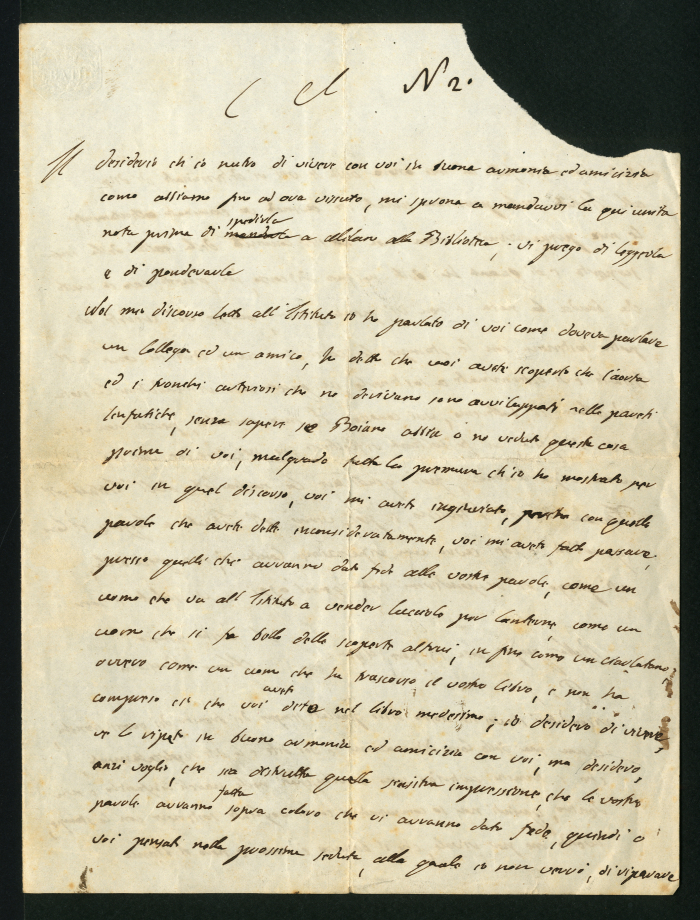 C Cl N 2.
Il desiderio ch'io nutro di vivere con voi in buona armonia ed amicizia
come abbiamo fino ad ora vissuto, mi sprona a mandarvi la qui unita
nota prima di mandarla spedirla a Milano alla Biblioteca; vi prego di leggerla
e di ponderarla
Nel mio discorso letto all'Istituto io ho parlato di voi come doveva parlare
un Collega ed un amico, ho detto che voi avete scoperto che l'aorta
ed i tronchi arteriosi che ne derivano sono avviluppati nelle pareti
linfatiche, senza sapere se Bojano abbia o no veduto questa cosa
prima di voi, malgrado tutta la premura ch'io ho mostrato per
voi in quel discorso, voi mi avete ingiuriato, con quelle
parole che avete dette inconsideratamente, voi mi avete fatto passare,
presso quelli che avranno dato fede alle vostre parole, come un
uomo che va all'Istituto a vender lucciole per lanterne, come un
uomo che si fa bello delle scoperte altrui, in fine come un ciarlatano,
ovvero come un uom che ha trascorso il vostro libro, e non ha
compreso ciò che voi avete detto nel libro medesimo; io desidero di vivere,
ve lo ripeto in buona armonia ed amicizia con voi, ma desidero,
anzi voglio, che sia distrutta quella sinistra impressione, che le vostre
parole avranno fatta sopra coloro che vi avranno dato fede, quindi o
voi pensate nella prossima seduta, alla quale io non verrò, di riparare